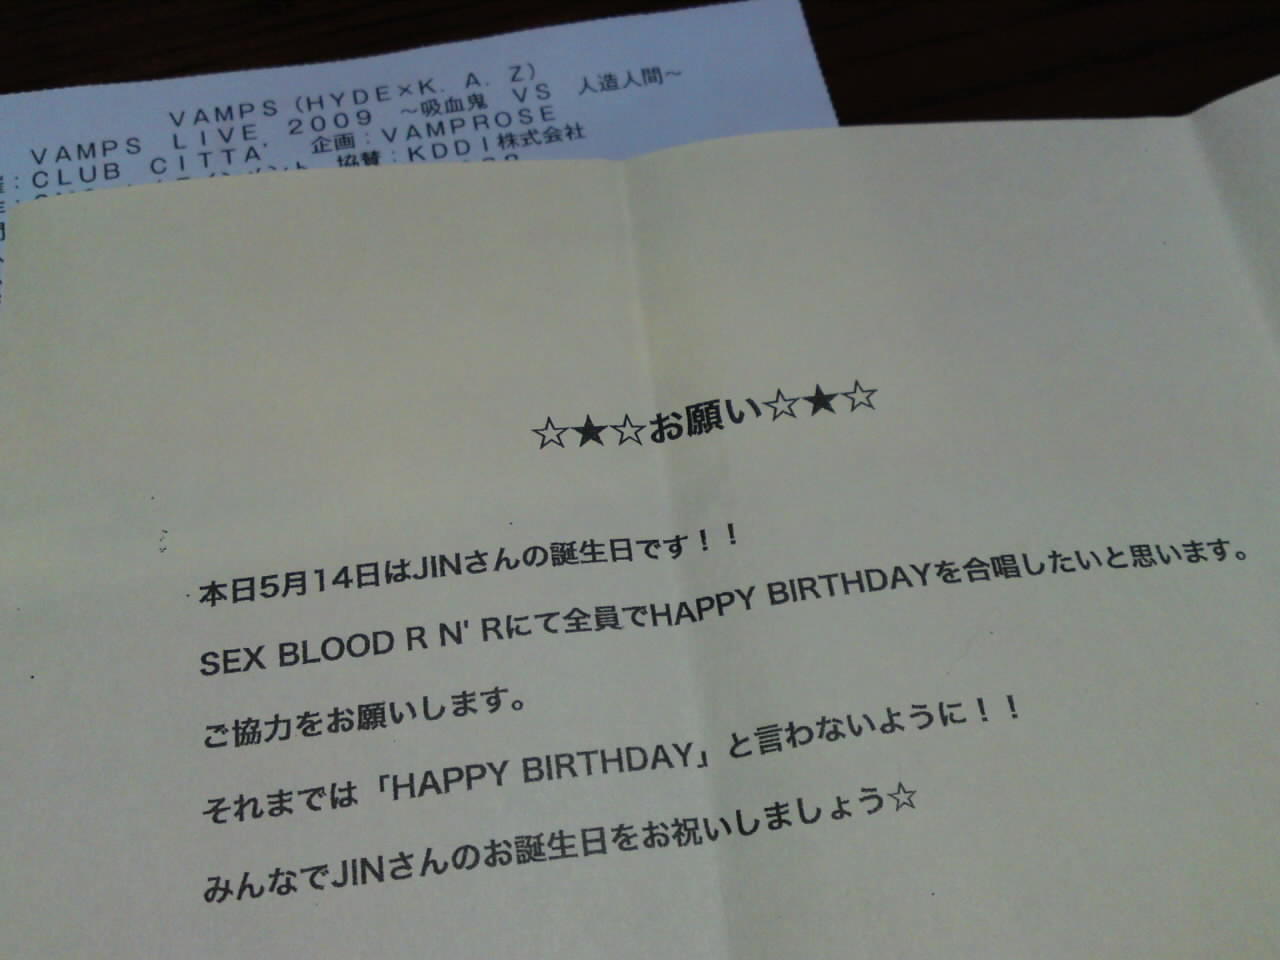 VAMPS(HYDE×K.A.Z)
VAMPS LIVE 2009 ～吸血鬼 VS 人造人間～
:CLUB CITTA' 企画:VAMPROSE
協賛:KDDI株式会社
☆★☆お願い☆★☆
本日5月14日はJINさんの誕生日です！！
SEX BLOOD R N' Rにて全員でHAPPY BIRTHDAYを合唱したいと思います。
ご協力をお願いします。
それまでは「HAPPY BIRTHDAY」と言わないように！！
みんなでJINさんのお誕生日をお祝いしましょう☆